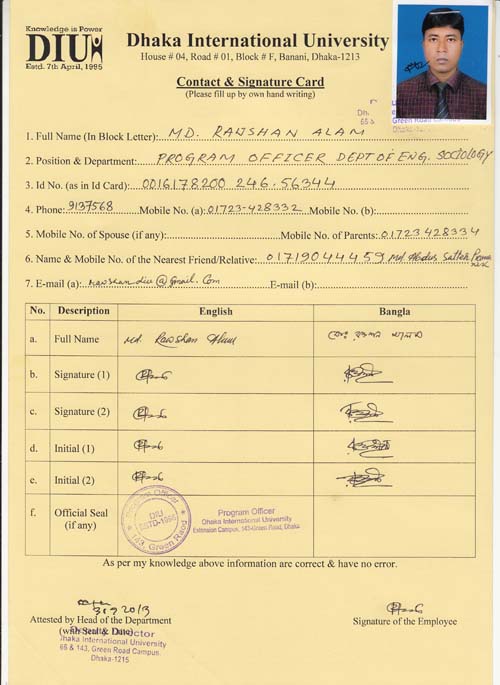 Knowledge is Power
DIU
Estd. 7th April, 1995
Dhaka International University
House # 04, Road # 01, Block # F, Banani, Dhaka-1213
Contact & Signature Card
(Please fill up by own hand writing)
1. Full Name (In Block Letter): MD. RAWSHAN ALAM
2. Position & Department: PROGRAM OFFICER DEPT OF ENG. SOCIOLOGY
3. Id No. (as in Id Card): 0016178200 246.56344
4. Phone: 9137568 Mobile No. (a): 01723-428332 Mobile No. (b):
5. Mobile No. of Spouse (if any): Mobile No. of Parents: 01723428334
6. Name & Mobile No. of the Nearest Friend/Relative: 01719044459 Md. Abdus Sattar
7. E-mail (a): rawshan.diu@gmail.com E-mail (b):
No. Description English Bangla
a. Full Name Md. Rawshan Alam মোঃ রওশন আলম
b. Signature (1)
c. Signature (2)
d. Initial (1)
e. Initial (2)
f. Official Seal (if any)
Program Officer
DIU
ESTD-1995
143, Green Road
Program Officer
Dhaka International University
Extension Campus, 143-Green Road, Dhaka
As per my knowledge above information are correct & have no error.
3.9.2013
Attested by Head of the Department
(with Seal & Date)
Director
Dhaka International University
66 & 143, Green Road Campus.
Dhaka-1215
Signature of the Employee